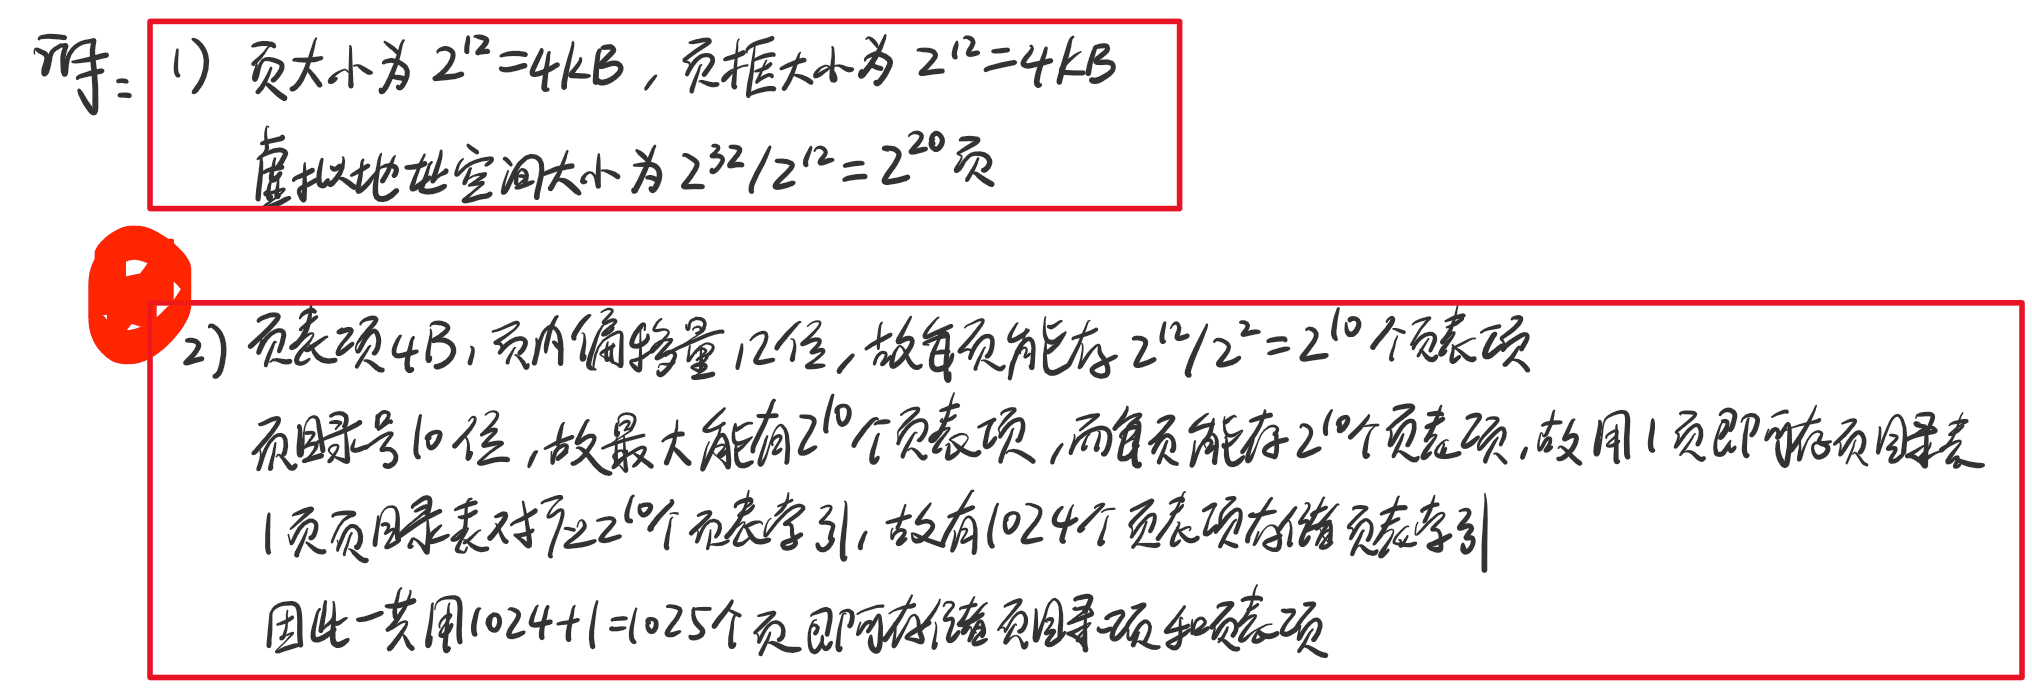 解: 1) 页大小为 2^12=4kB, 页框大小为 2^12=4kB
虚拟地址空间大小为 2^32/2^12=2^20页
2) 页表项4B, 页内偏移量12位, 故每页能存 2^12/2^2=2^10个页表项
页目录号10位, 故最大能有2^10个页表项, 而每页能存2^10个页表项, 故用1页即可存页目录表
1页页目录表对应2^10个页表索引, 故有1024个页表项存储页表索引
因此一共用1024+1=1025个页即可存储页目录项和页表项